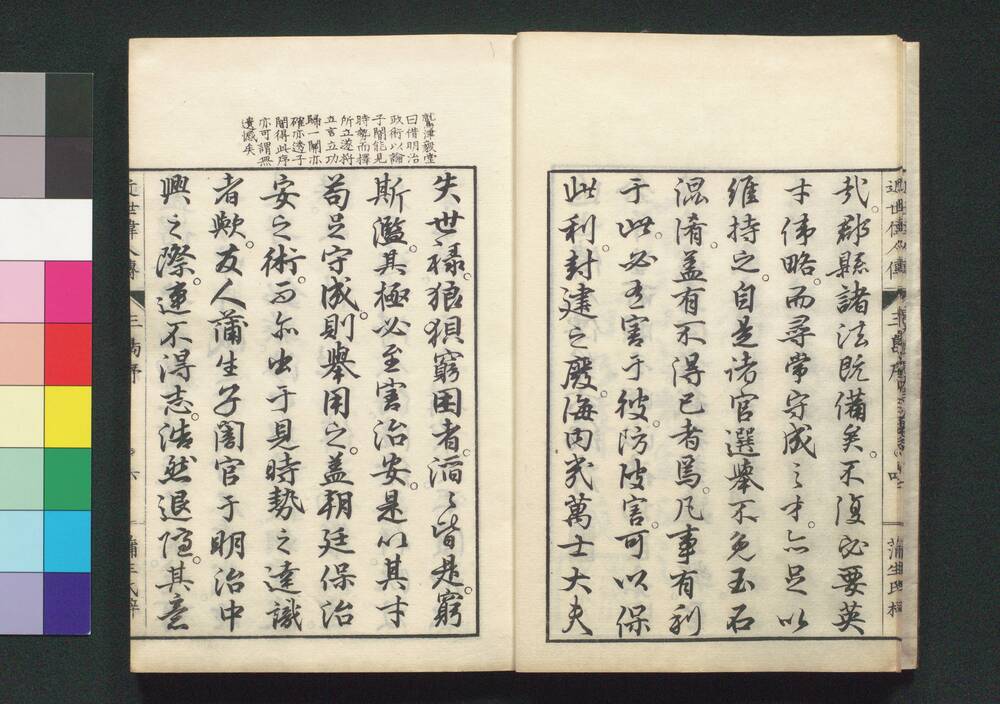 哉。郡縣諸法既備矣。不復必要英
才偉略。而尋常守成之才。亦足以
維持之。自是諸官選擧。不免玉石
混淆。蓋有不得已者焉。凡事有利
于此。必有害于彼。防彼害。可以保
此利。封建之廢。海内幾萬士大夫
失世祿。狼狽窮困者。滔々皆是。窮
斯濫。其極必至害治安。是以其才
苟足守成。則擧用之。蓋朝廷保治
安之術。而亦出于見時勢之達識
者歟。友人蒲生子闇官于明治中
興之際。連不得志。浩然退隱。其意
鷲津毅堂
曰借明治
政術以論
子闇能見
時勢而擇
所立遂將
立言立功
歸一關亦
確亦透子
闇得此序
亦可謂無
遺憾矣
近世偉人傳
蒲生氏